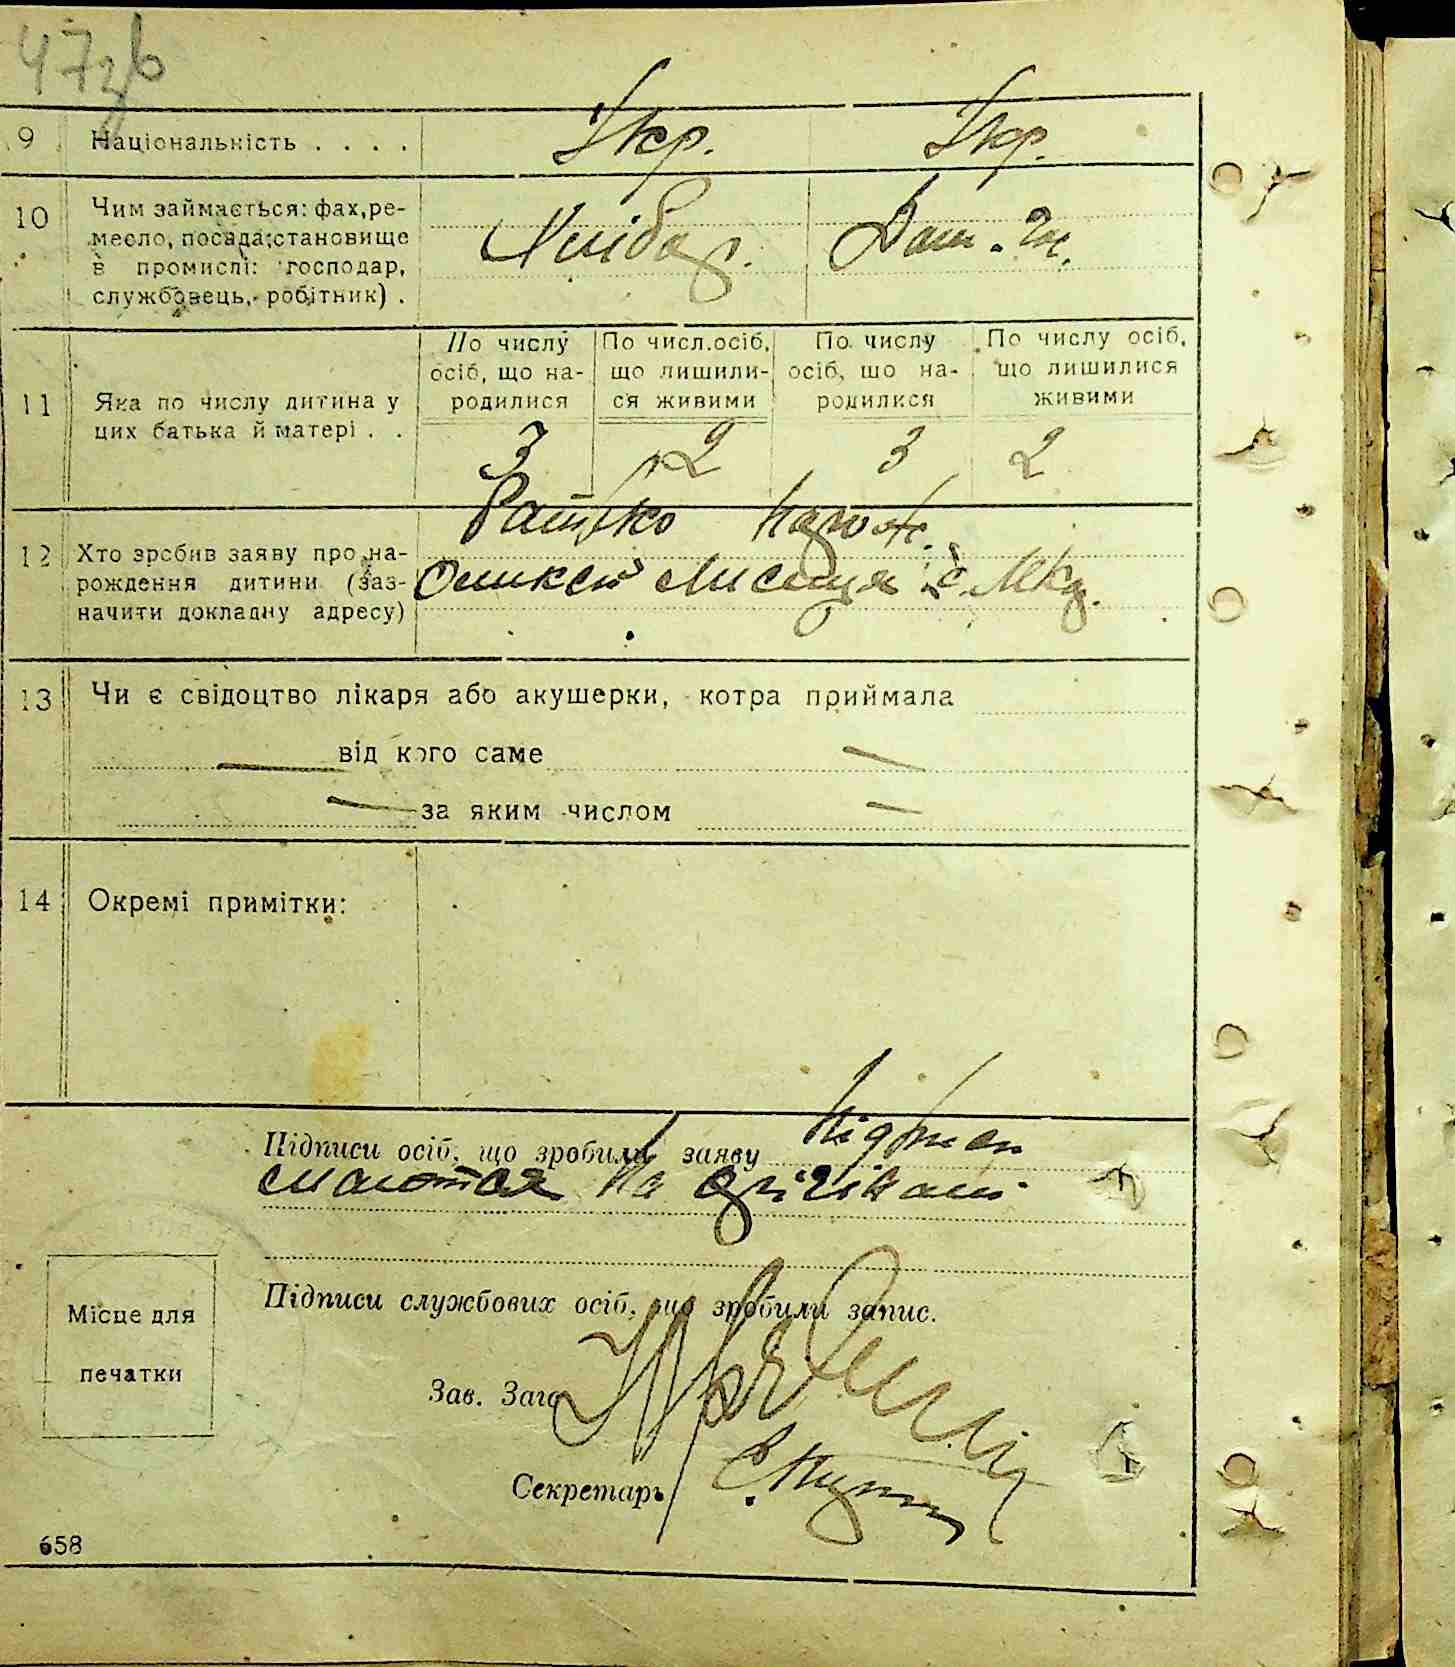 47зв
9 Національність . . . . Укр. Укр.
10 Чим займається: фах, ре-
месло, посада; становище
в промислі: господар,
службовець, робітник) .
Хлібор. Дом. Г.
11 Яка по числу дитина у
цих батька й матері . .
По числу
осіб, що на-
родилися
По числ. осіб,
що лишили-
ся живими
По числу
осіб, що на-
родилися
По числу осіб,
що лишилися
живими
3 2 3 2
12 Хто зробив заяву про на-
рождення дитини (заз-
начити докладну адресу)
Батько
Лисиця с.
13 Чи є свідоцтво лікаря або акушерки, котра приймала
від кого саме
за яким числом
14 Окремі примітки:
Підписи осіб, що зробили заяву Підписи
маються на
Підписи службових осіб, що зробили запис.
Місце для
печатки
Зав. Загс
Секретарь
658